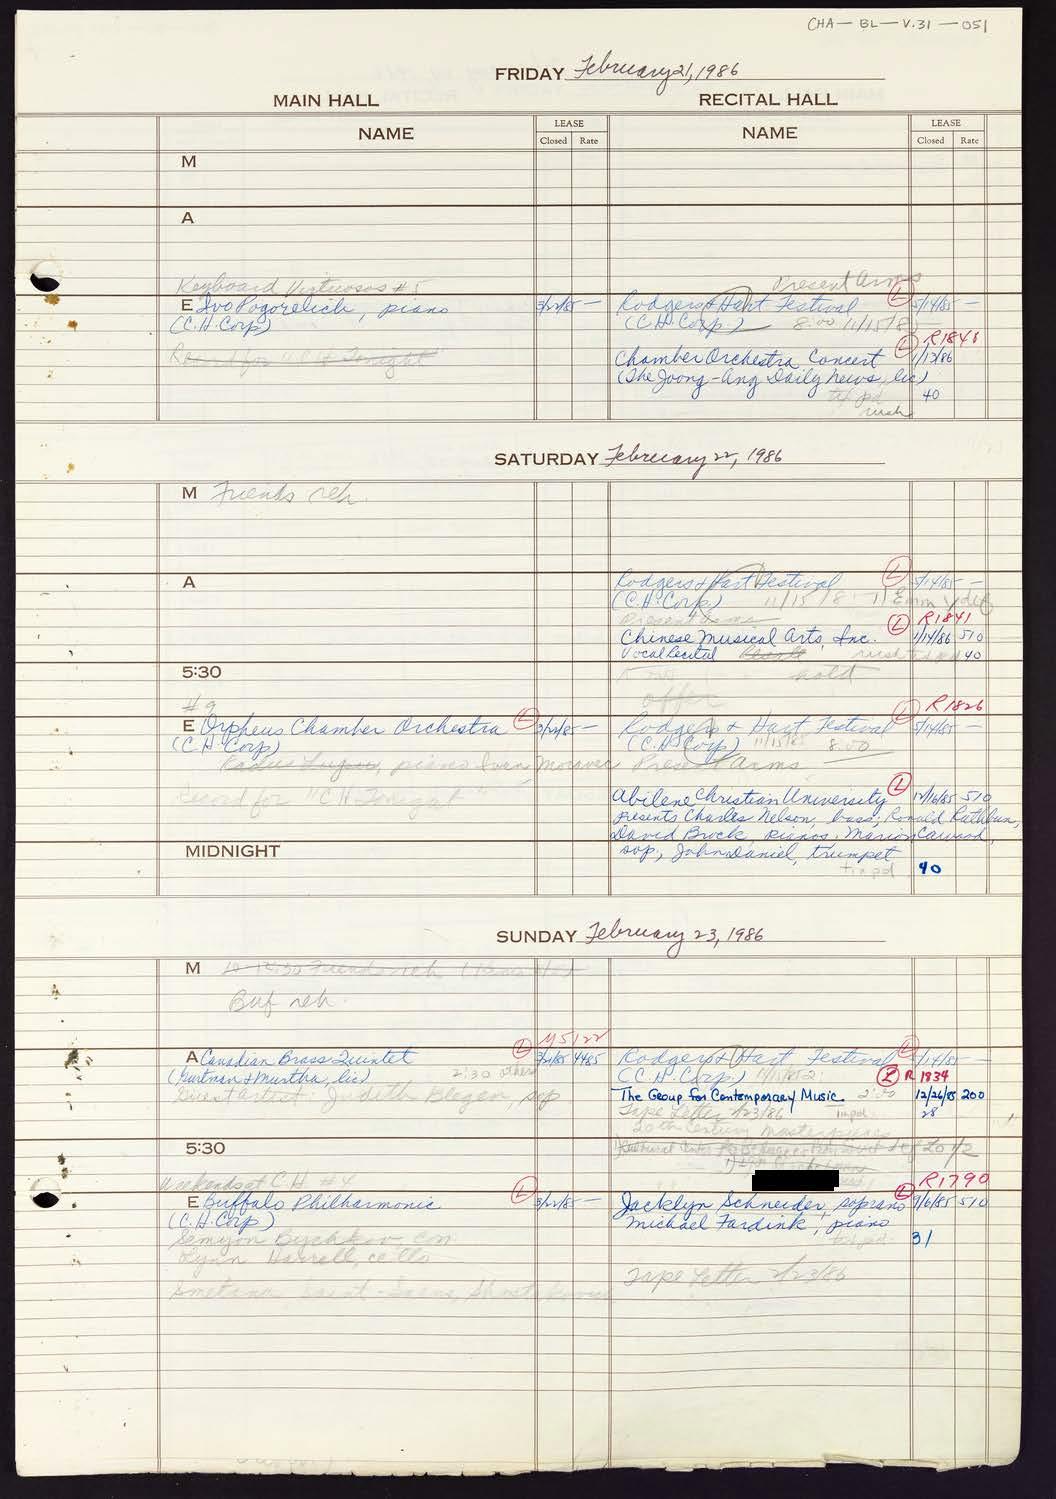 CHA — BL — V.31 — 051
FRIDAY February 21, 1986
MAIN HALL
RECITAL HALL
NAME
LEASE
Closed Rate
NAME
LEASE
Closed Rate
M
A
Keyboard Virtuosos #5
E Ivo Pogorelich, piano 3/22/85 —
(C.H. Corp)
Record for "C H Tonight"
Present Arms
Rodgers & Hart Festival L 5/14/85 —
(C.H. Corp.) 8:00 11/15/8
R1846
Chamber Orchestra Concert L 1/13/86
(The Joong-Ang Daily News, lic)
40
SATURDAY February 22, 1986
M Friends reh.
A
Rodgers & Hart Festival L 5/14/85 —
(C.H. Corp) 11/15/8
Present Arms L R1841
Chinese Musical Arts, Inc. 1/14/86 510
Vocal Recital 40
5:30
hold
offer
#9
E Orpheus Chamber Orchestra L 3/22/85 —
(C.H. Corp)
Radus Lupus, piano Ivan Moravec
Record for "C H Tonight"
R1826
Rodgers & Hart Festival L 5/14/85 —
(C.H. Corp) 11/15/85 8:00
Present Arms
Abilene Christian University L 12/16/85 510
presents Charles Nelson, bass; Ronald Rathbun,
David Brock, pianos, Marion Cawood,
sop, John Daniel, trumpet
40
MIDNIGHT
SUNDAY February 23, 1986
M
Buf reh.
M5122
A Canadian Brass Quintet L 4485
(Gurtman & Murtha, lic) 2:30 others
Guest artist: Judith Blegen, sop
Rodgers & Hart Festival L 5/14/85 —
(C.H. Corp.) L R 1834
The Group for Contemporary Music 2:00 12/26/85 200
Tape Letter 1/23/86 28
20th Century Masterpieces
5:30
Weekends at C.H. #4
E Buffalo Philharmonic L 3/22/85 —
(C.H. Corp)
Semyon Bychkov, con
Lynn Harrell, cello
Smetana, Saint-Saens, Shostakovich
R1790
Jacklyn Schneider, soprano L 9/6/85 510
Michael Fardink, piano
31
Tape Letter 1/23/86